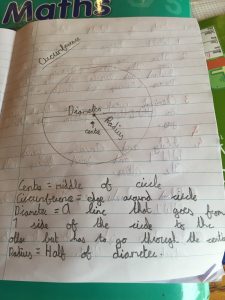 Maths
Circumference
Diameter
Radius
centre
Centre = middle of circle
Circumference = edge around circle
Diameter = A line that goes from
1 side of the circle to the
other but has to go through the centre
Radius = Half of diameter.